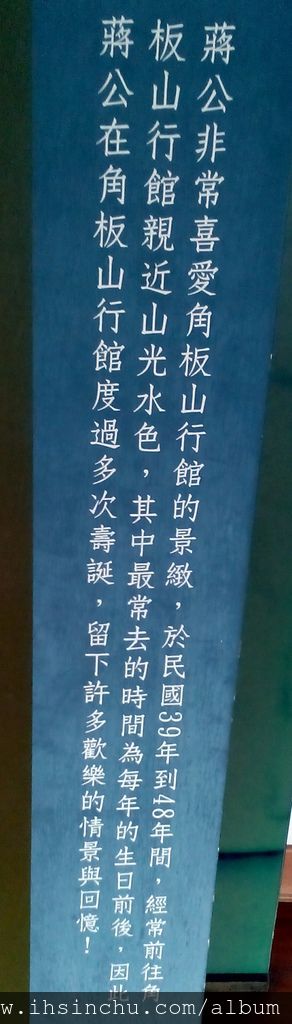 蔣公非常喜愛角板山行館的景緻，於民國39年到48年間，經常前往角
板山行館親近山光水色，其中最常去的時間為每年的生日前後，因此
蔣公在角板山行館度過多次壽誕，留下許多歡樂的情景與回憶！
w.ihsinchu.com/album